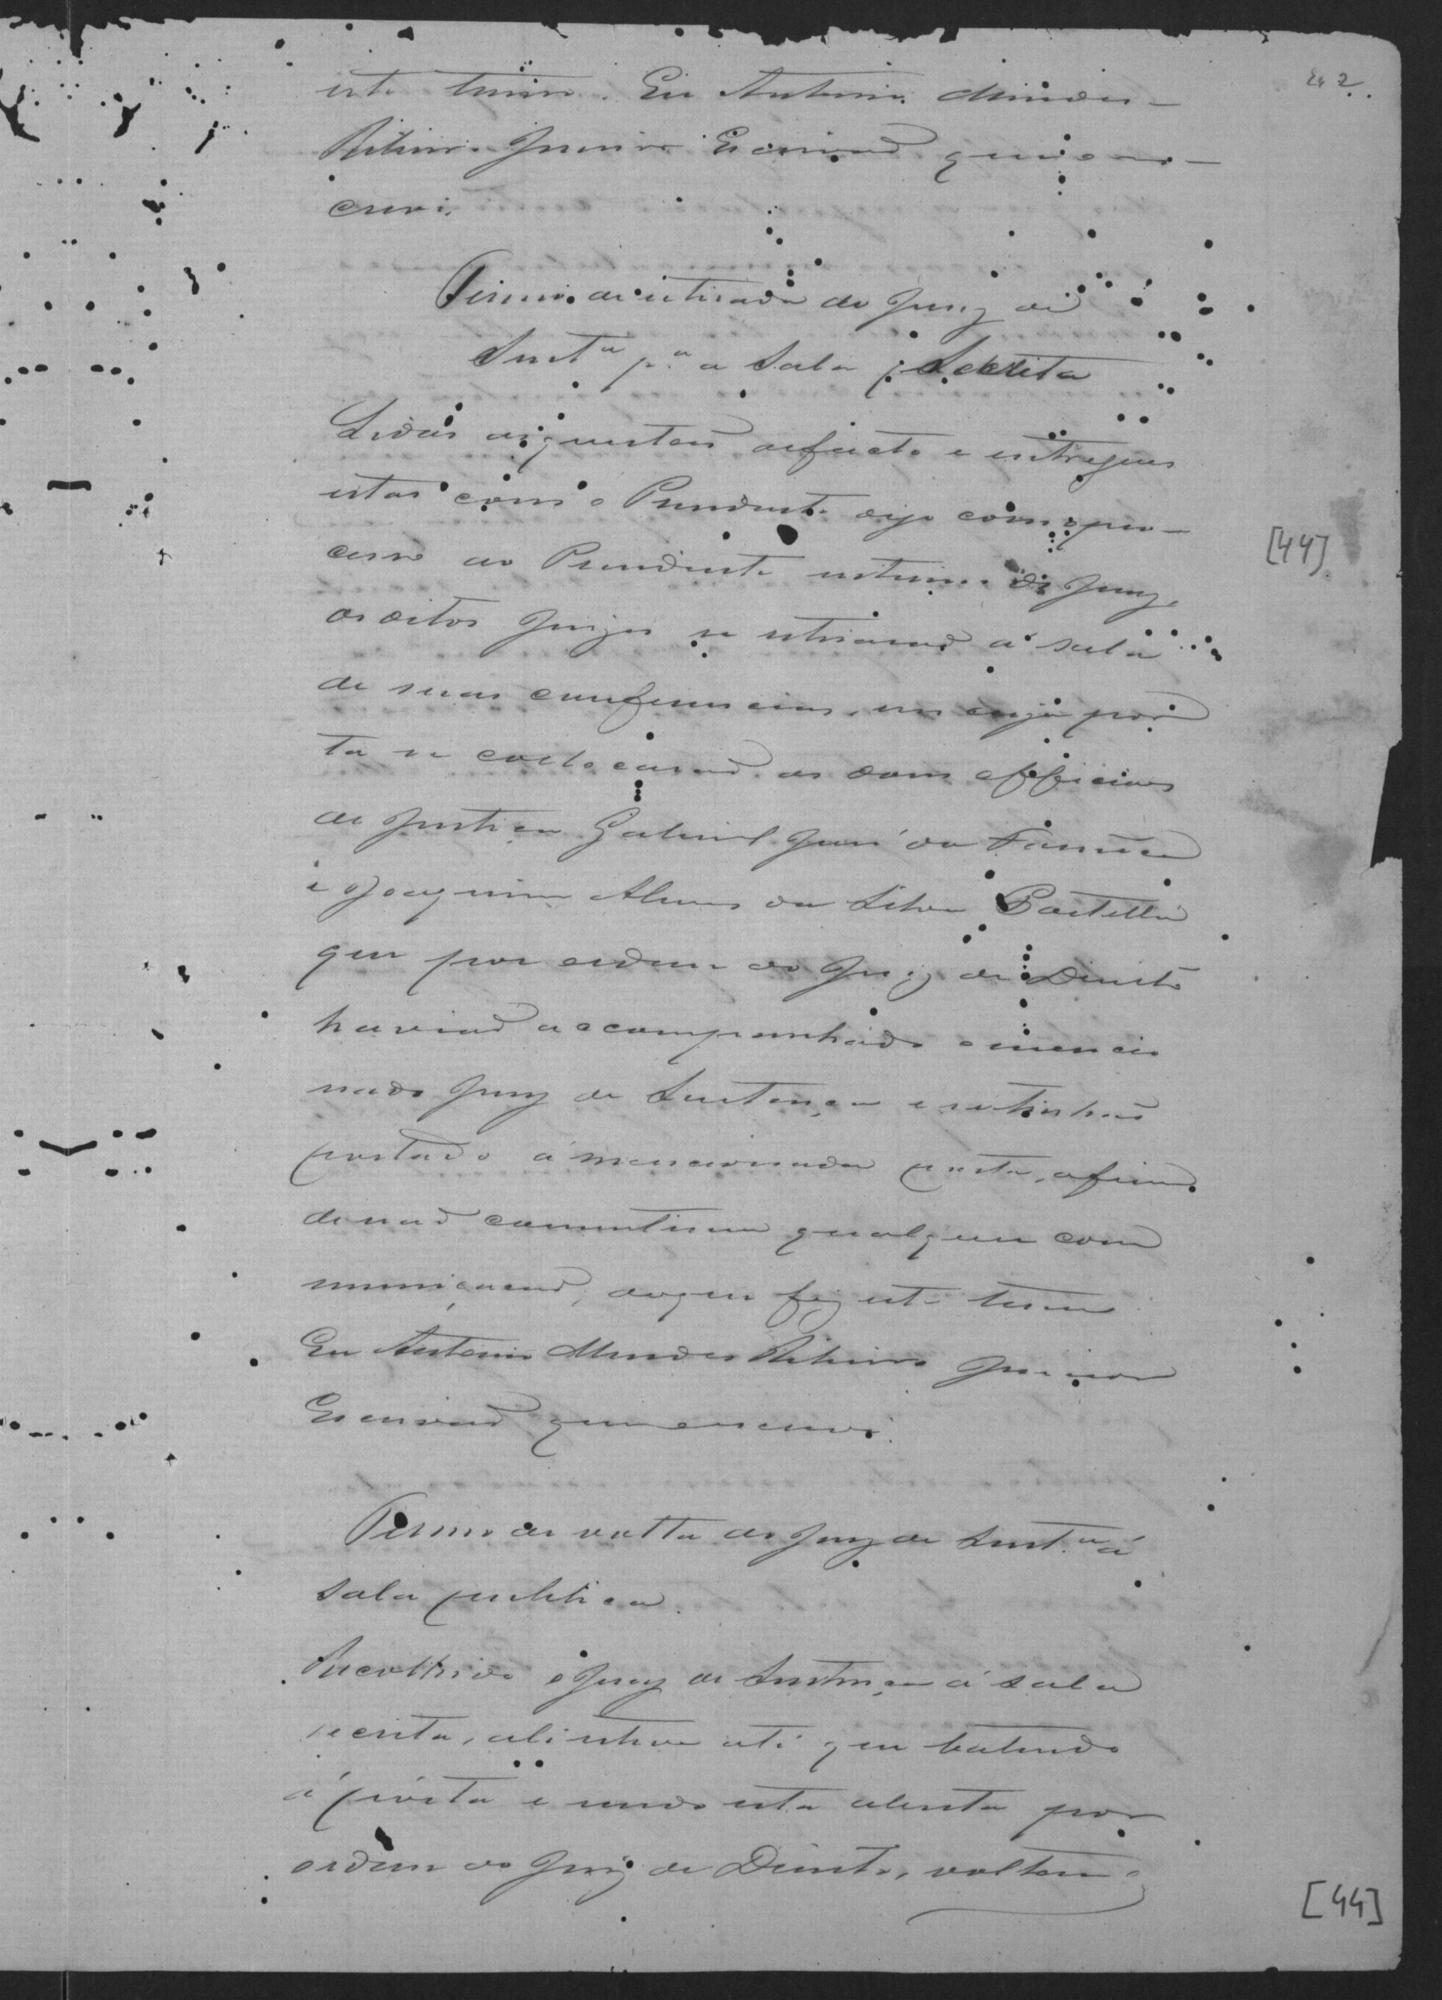 42.
este termo. Eu Antonio Mendes
Ribeiro Junior Escrivaõ que o es-
crevi.
Termo de retirada do Jury de
Sent.ça p.a a Sala Secreta
Lidas as questoẽs de facto e entregues
estas com o
cesso ao Presidente interino do Jury,
os ditos Juizes se retiraraõ á sala
de suas conferencias, em cuja por
ta se collocaraõ os dous officiaes
de Justiça Gabriel José da Fonseca
e Joaquim Alves da Silva Portella
que por ordem do Juiz de Direito
haviaõ accompanhado o mencio
nado Jury de Sentença e se tinhaõ
postado á mencionada porta, afim
de naõ consentirem qualquer com
municaçaõ, do que fiz este termo
Eu Antonio Mendes Ribeiro Junior
Escrivaõ que o escrevi.
Termo de volta do Jury de Sent.ça á
sala publica.
Recolhido o Jury de Sentença á sala
secreta, ali esteve até que batendo
á pórta e sendo esta aberta por
ordem do Juiz de Direito, voltou
[44]
[44]